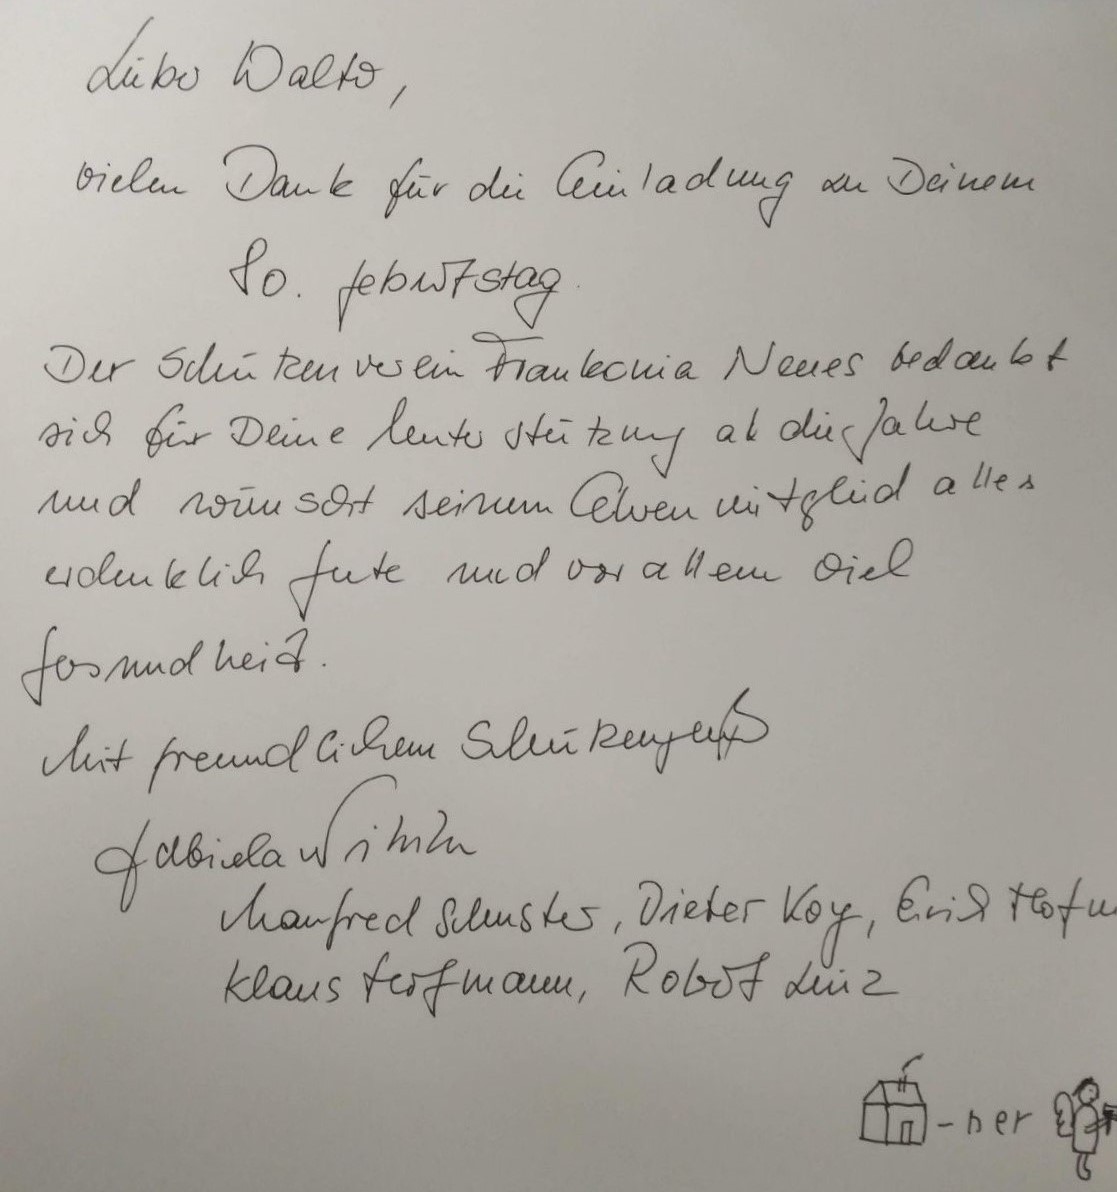 Lieber Walter,
vielen Dank für die Einladung zu Deinem
80. Geburtstag.
Der Schützenverein Frankonia Neuses bedankt
sich für Deine Unterstützung all die Jahre
und wünscht seinem Ehrenmitglied alles
erdenklich Gute und vor allem viel
Gesundheit.
Mit freundlichem Schützengruß
Gabriela
Manfred Schuster, Dieter Koy, Erich Hofm
Klaus Hofmann, Robert Linz
-ner